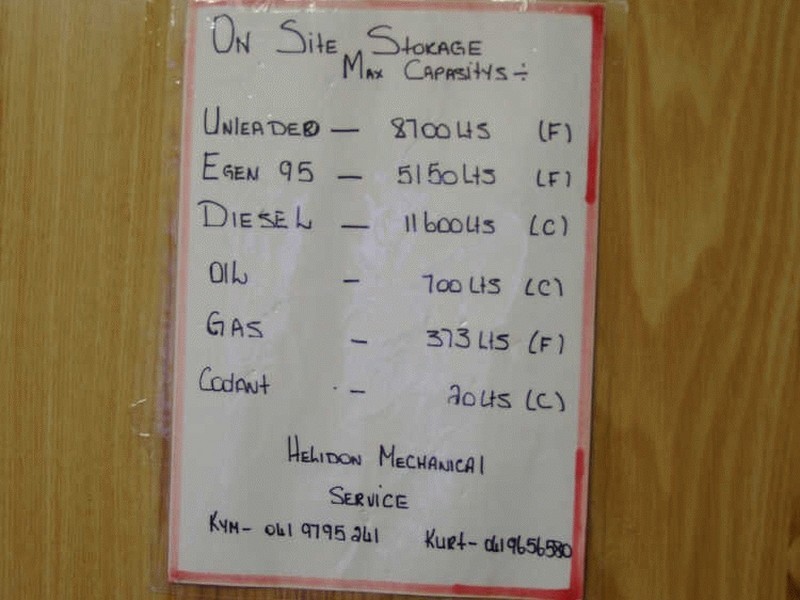 On Site Storage
Max Capasitys ÷
Unleaded — 8700 Lts (F)
Egen 95 — 5150 Lts (F)
Diesel — 11600 Lts (C)
Oil - 700 Lts (C)
Gas - 373 Lts (F)
Coolant - 20 Lts (C)
Helidon Mechanical
Service
Kym- 041 9795 241 Kurt- 0419656580